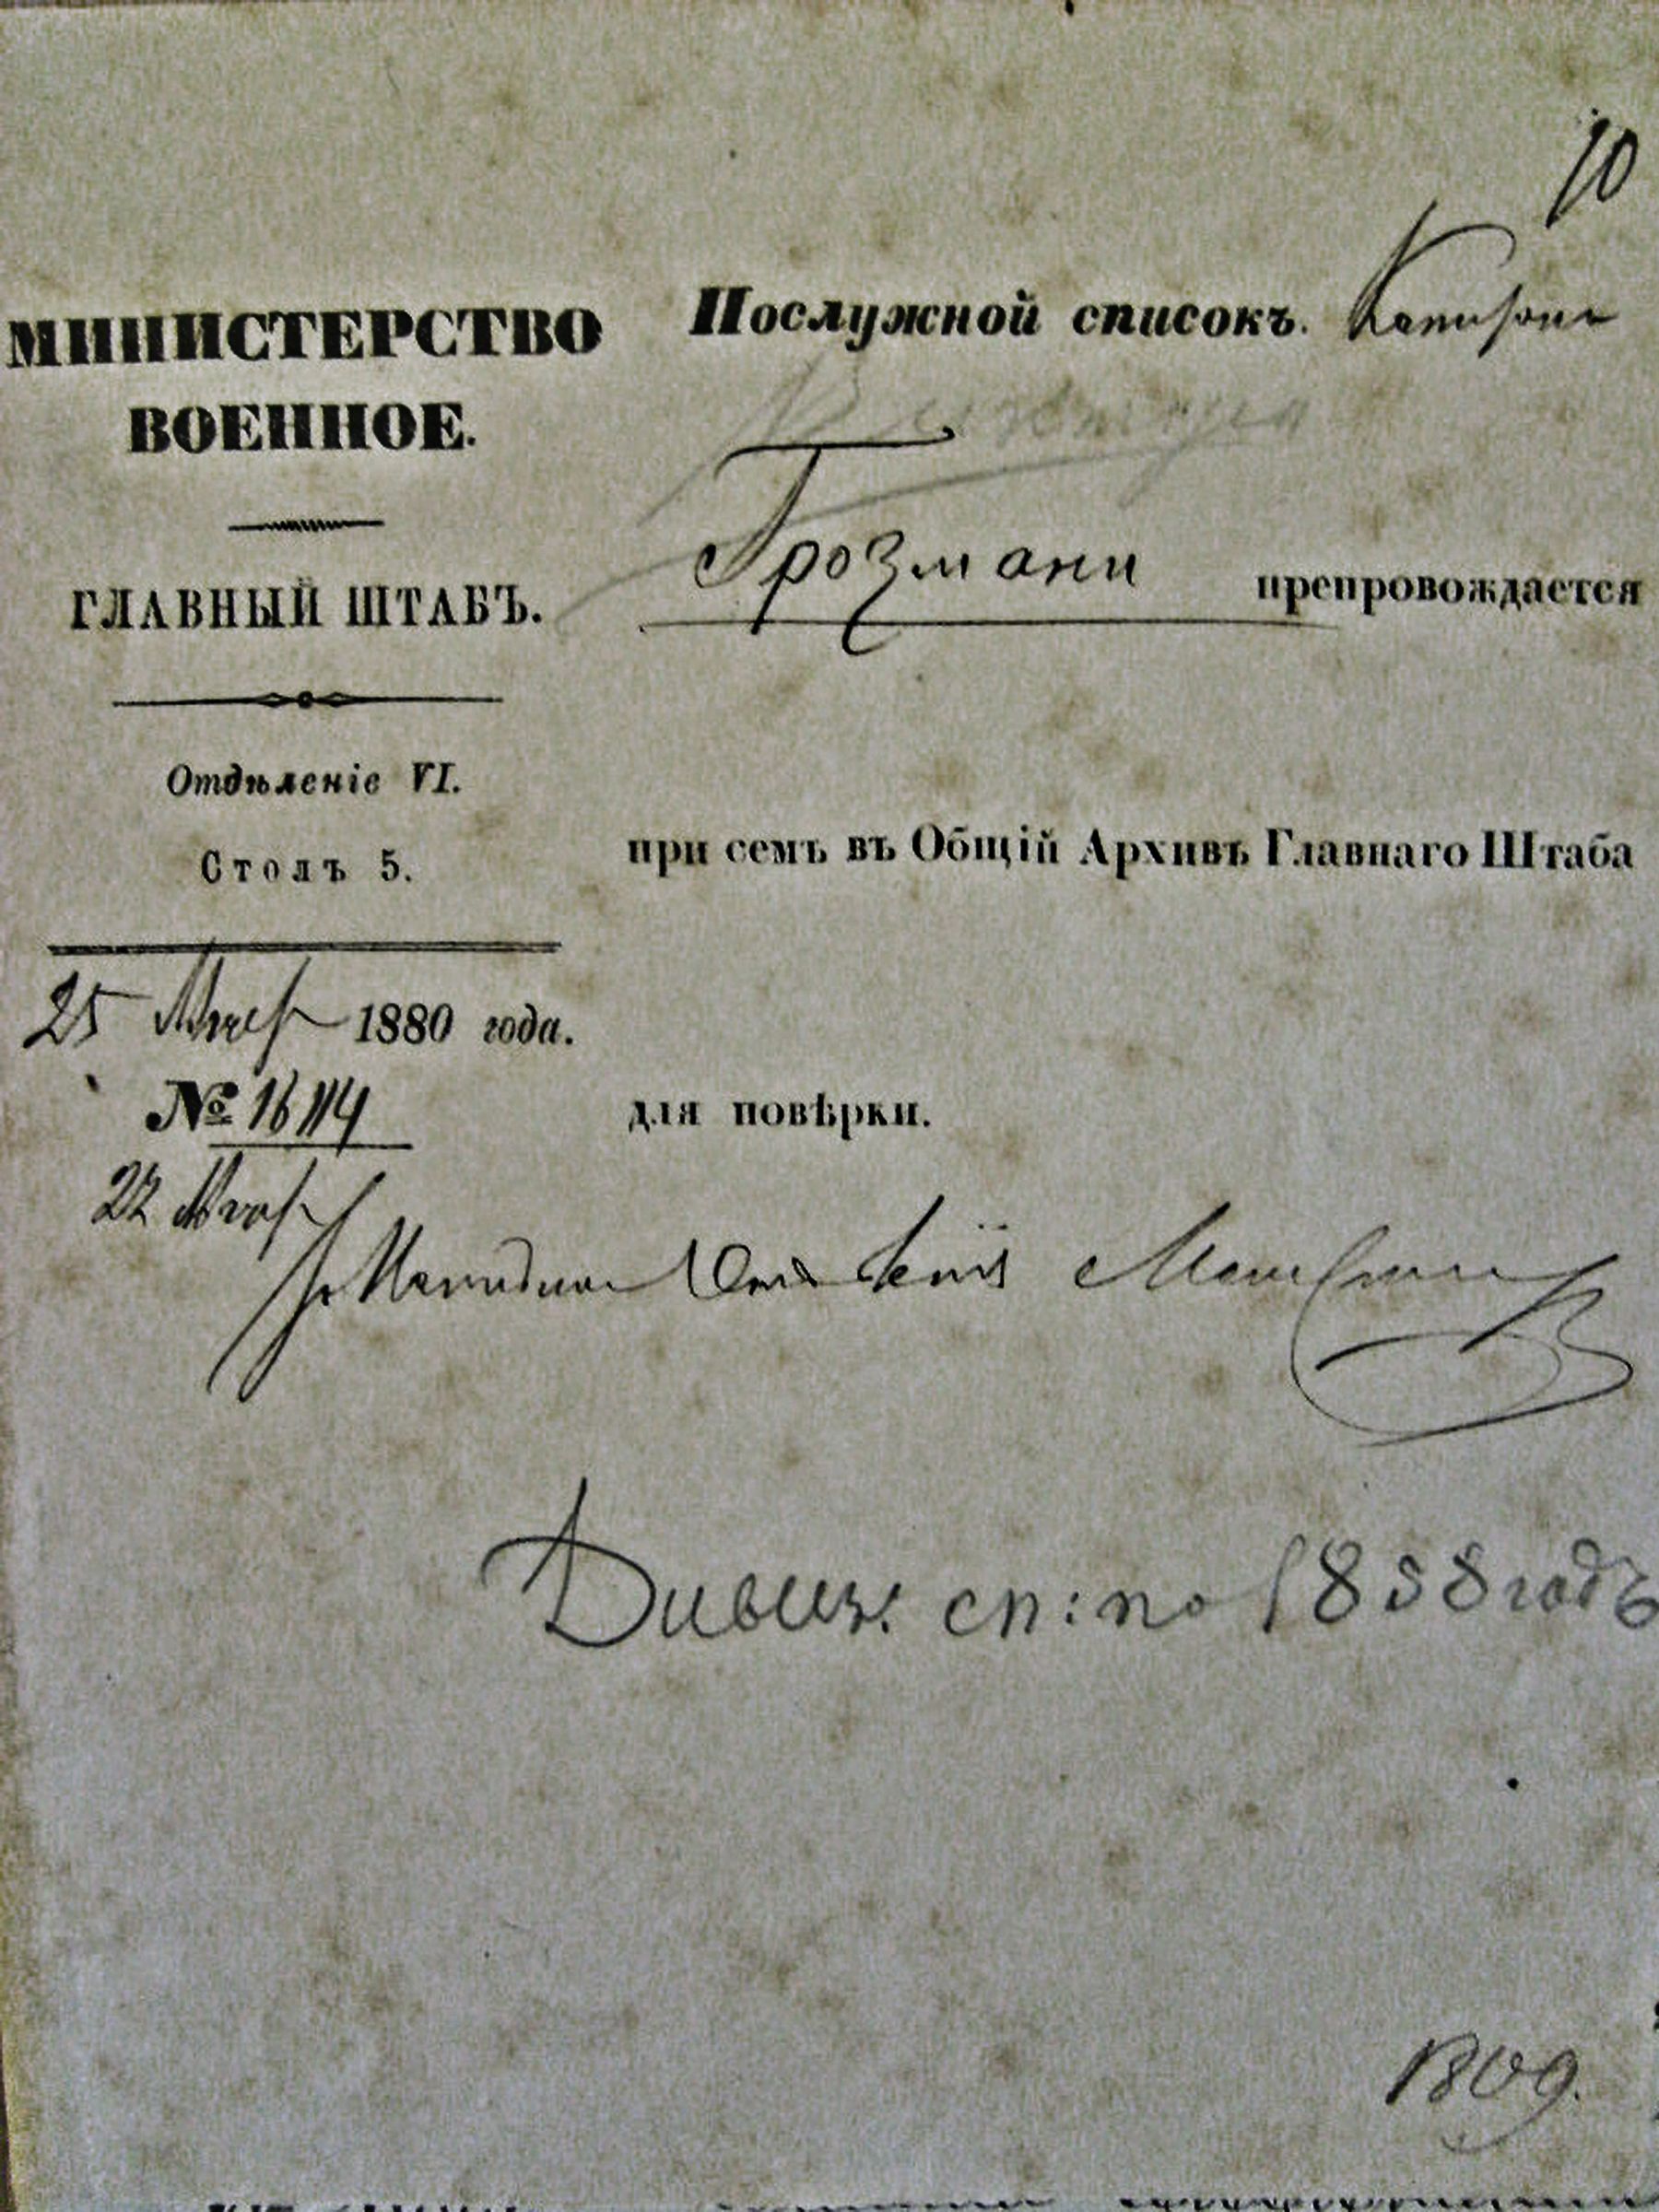 10
МИНИСТЕРСТВО
ВОЕННОЕ.
ГЛАВНЫЙ ШТАБЪ.
Отдѣленіе VI.
Столъ 5.
25 1880 года.
№ 16114
22
Послужной списокъ. Капитана
Грозмани препровождается
при семъ въ Общій Архивъ Главнаго Штаба
для повѣрки.
Дивиз. сп: по 1858 годъ
1809.